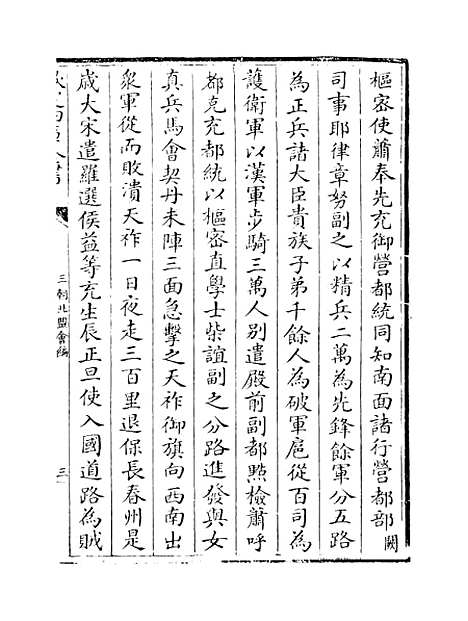 樞密使蕭奉先充御營都統同知南面諸行營都部闕
司事耶律章努副之以精兵二萬為先鋒餘軍分五路
為正兵諸大臣貴族子弟千餘人為破軍扈從百司為
護衛軍以漢軍步騎三萬人別遣殿前副都㸃檢蕭呼
都克充都統以樞密直學士柴誼副之分路進發與女
真兵馬會契丹未陣三面急擊之天祚御旗向西南出
衆軍從而敗潰天祚一日夜走三百里退保長春州是
歳大宋遣羅選侯益等充生辰正旦使入國道路為賊
三朝北盟會編
三